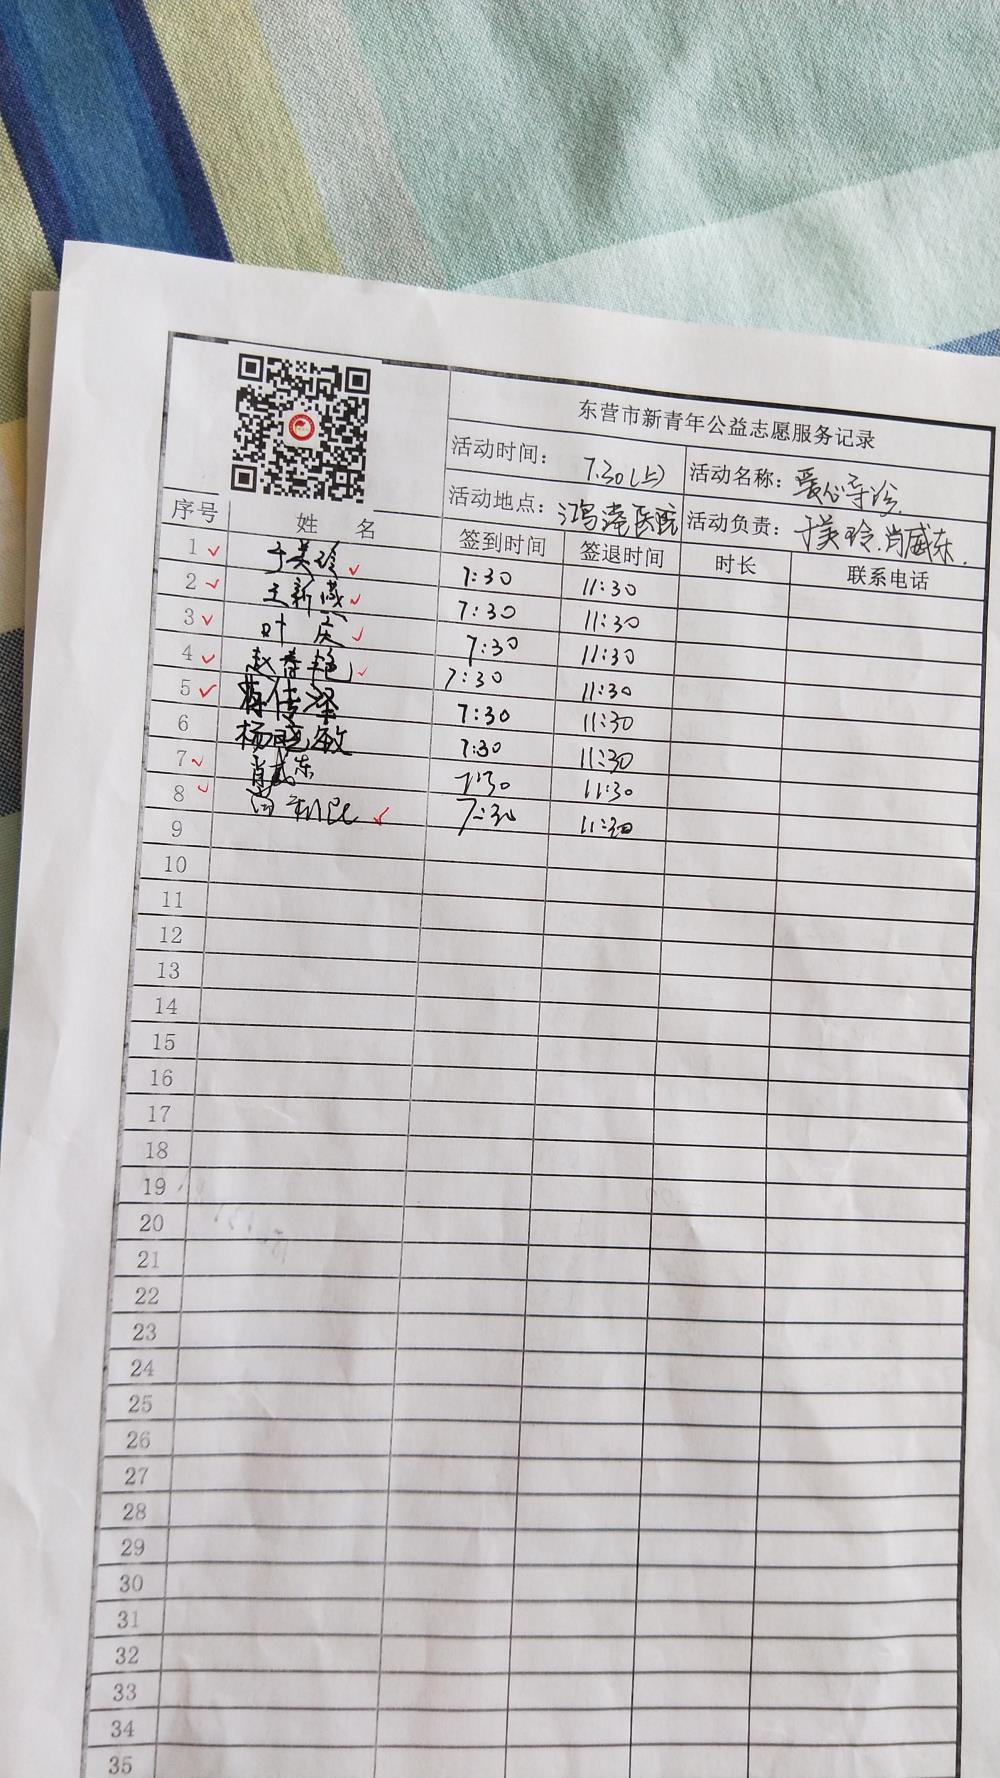 东营市新青年公益志愿服务记录
活动时间： 7.30(上) 活动名称：爱心导诊.
活动地点：鸿港医院 活动负责：于美玲.肖威东.
序号 姓 名 签到时间 签退时间 时长 联系电话
1 ✓ 于美玲 ✓ 7:30 11:30
2 ✓ 王新 ✓ 7:30 11:30
3 ✓ 叶庆 ✓ 7:30 11:30
4 ✓ 赵春艳 ✓ 7:30 11:30
5 ✓ 传泽 7:30 11:30
6 杨晓敏 7:30 11:30
7 ✓ 肖威东 7:30 11:30
8 ✓ ✓ 7:30 11:30
9
10
11
12
13
14
15
16
17
18
19
20
21
22
23
24
25
26
27
28
29
30
31
32
33
34
35